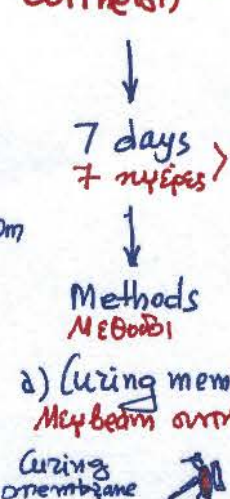 7 days
7 ημέρες
Methods
Μέθοδοι
a) Curing mem
Μεμβράνη συντ
Curing
membrane